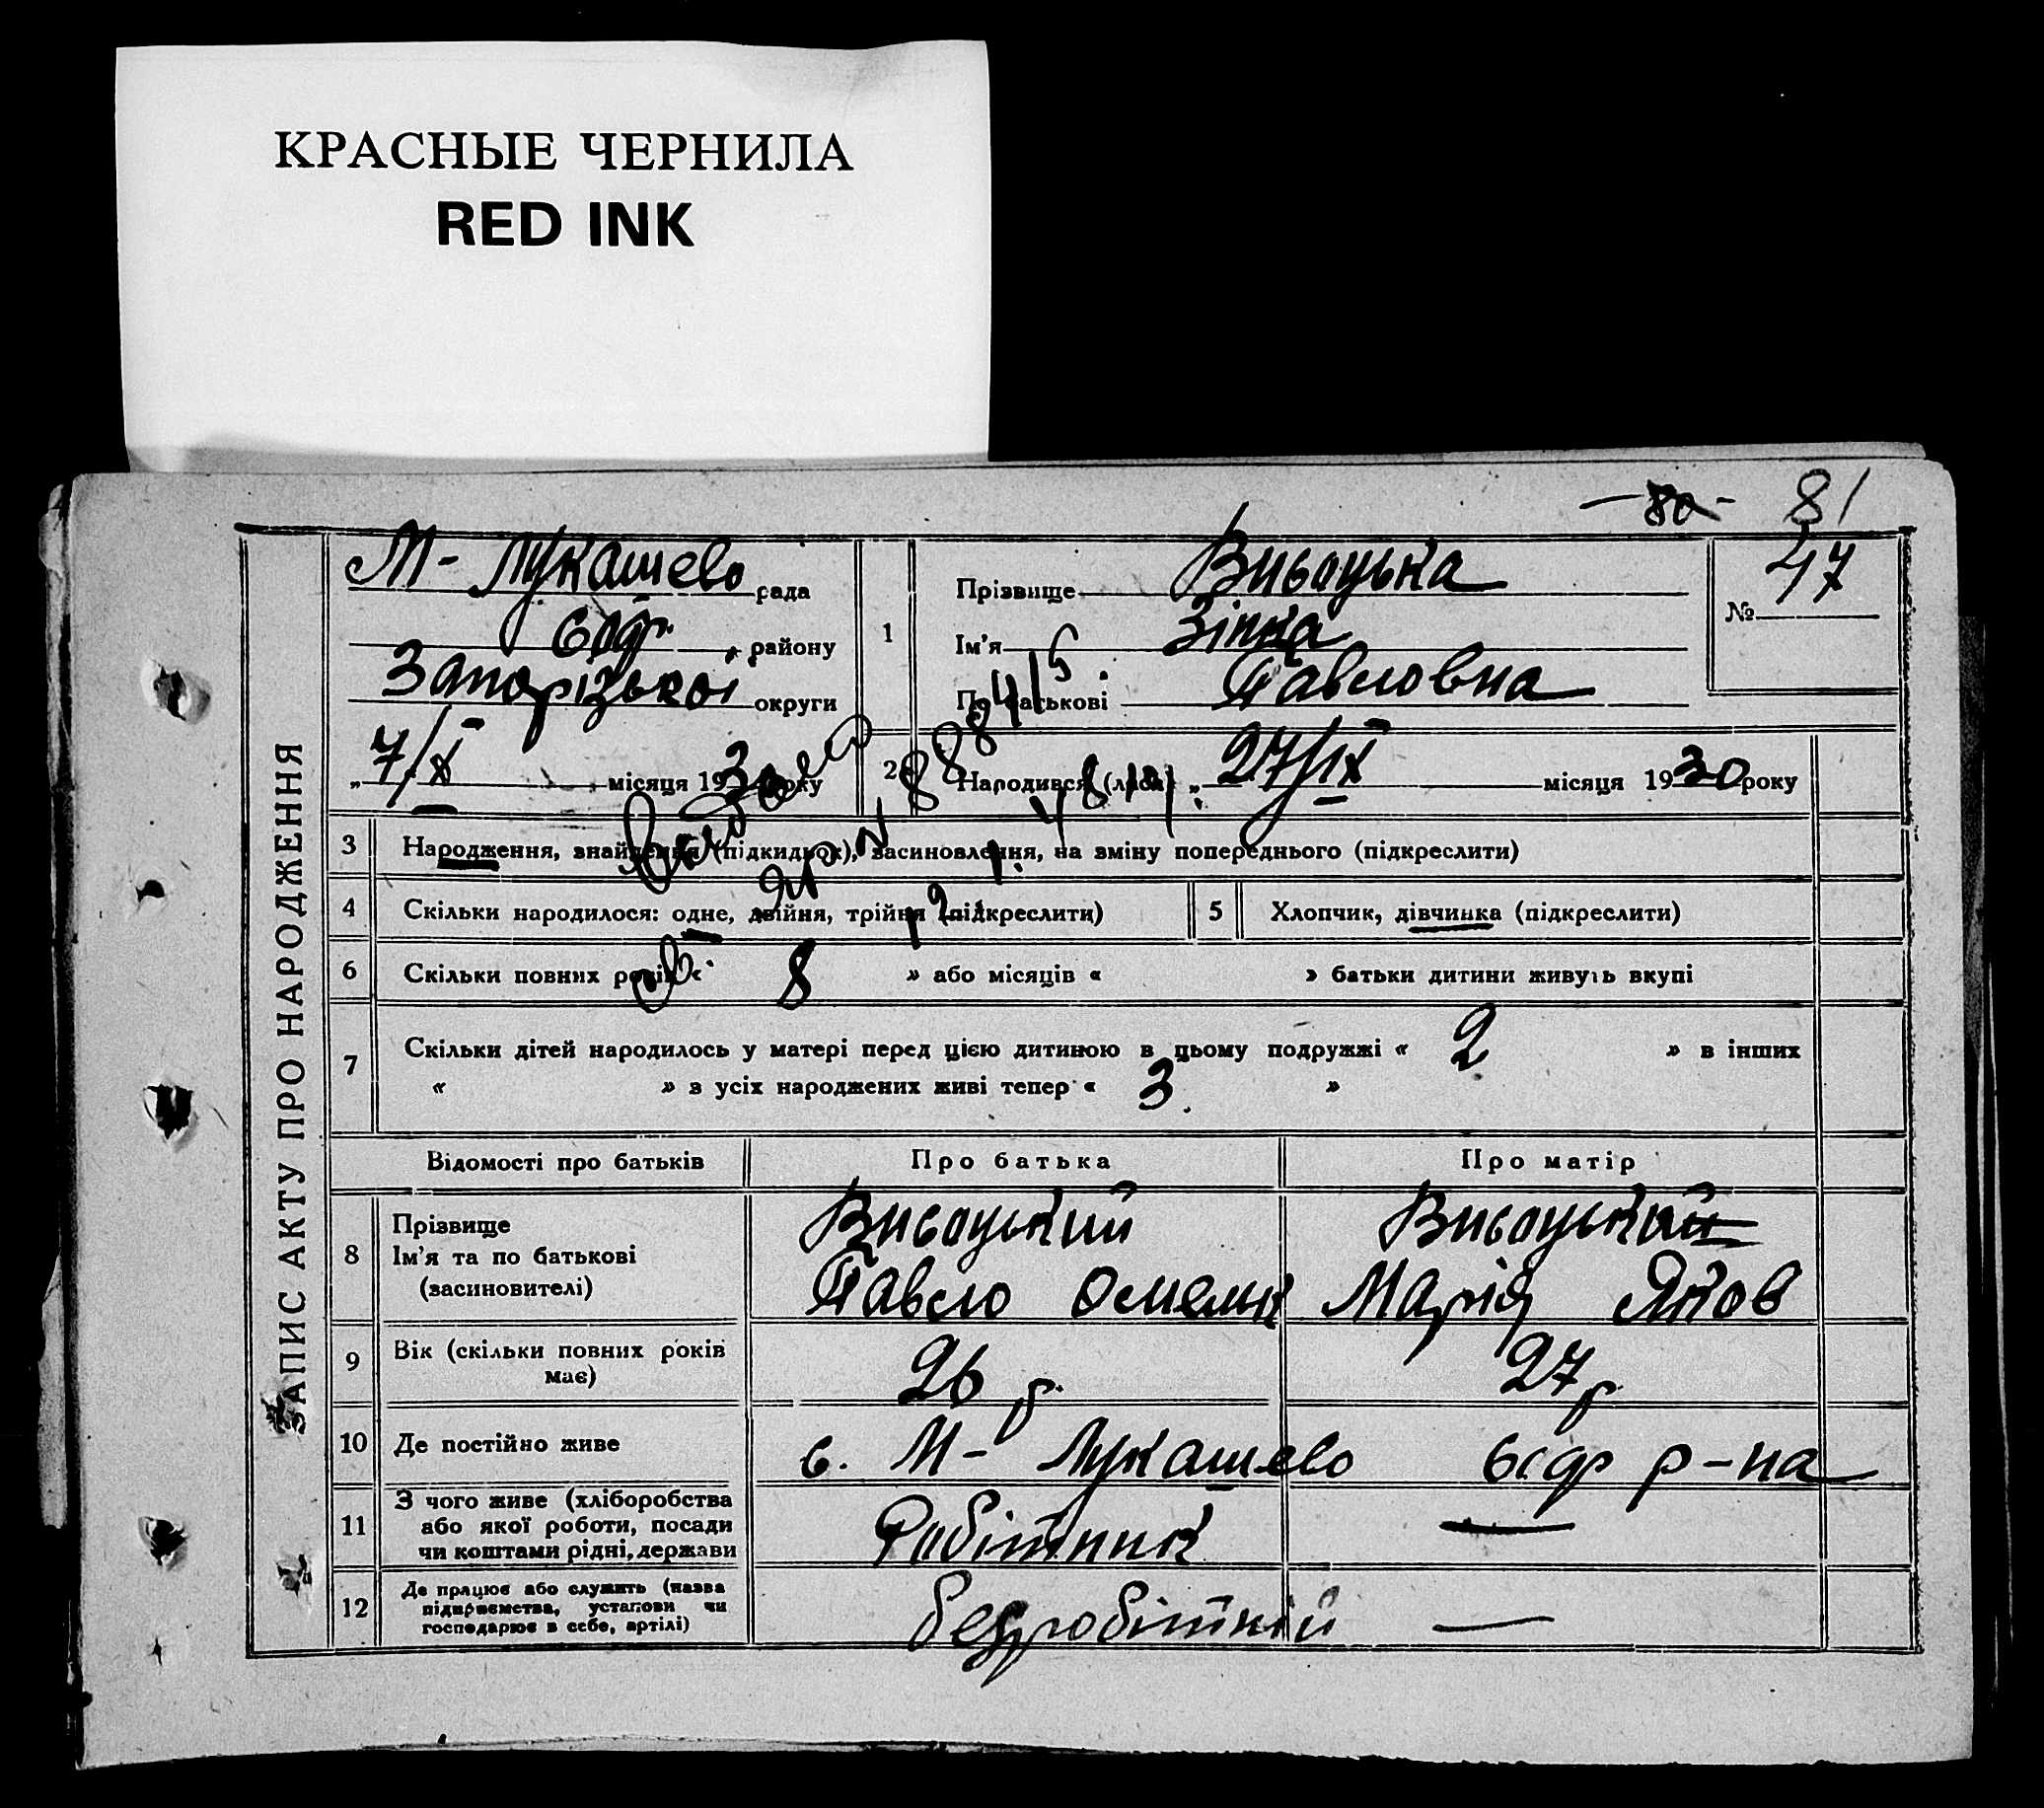 КРАСНЫЕ ЧЕРНИЛА
RED INK
- 80 - 81
ЗАПИС АКТУ ПРО НАРОДЖЕННЯ
М- Лукашево рада
району
Запорізької округи
„ 7/X місяця 1930 року
1
Прізвище Висоцька
Ім'я Зінка
По батькові Павловна
№ 47
2
Народився (лася) „ 27/IX місяця 1930 року
3 Народження, знайдення (підкидьок), засиновлення, на зміну попереднього (підкреслити)
4 Скільки народилося: одне, двійня, трійня (підкреслити)
5 Хлопчик, дівчинка (підкреслити)
6 Скільки повних років « 8 » або місяців « » батьки дитини живуть вкупі
7 Скільки дітей народилось у матері перед цією дитиною в цьому подружжі « 2 » в інших
« » з усіх народжених живі тепер « 3 »
Відомості про батьків Про батька Про матір
8 Прізвище
Ім'я та по батькові
(засиновителі)
Висоцький
Павло Омельк
Висоцький
Марія Яков
9 Вік (скільки повних років
має)
26 р.
27 р.
10 Де постійно живе с. М- Лукашево р-на
11 З чого живе (хліборобства
або якої роботи, посади
чи коштами рідні, держави
Робітник —
12 Де працює або служить (назва
підприємства, установи чи
господарює в себе, артілі)
безробітний —